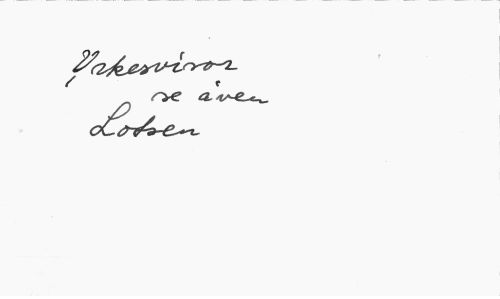 Yrkesvisor
se även
Lotsen